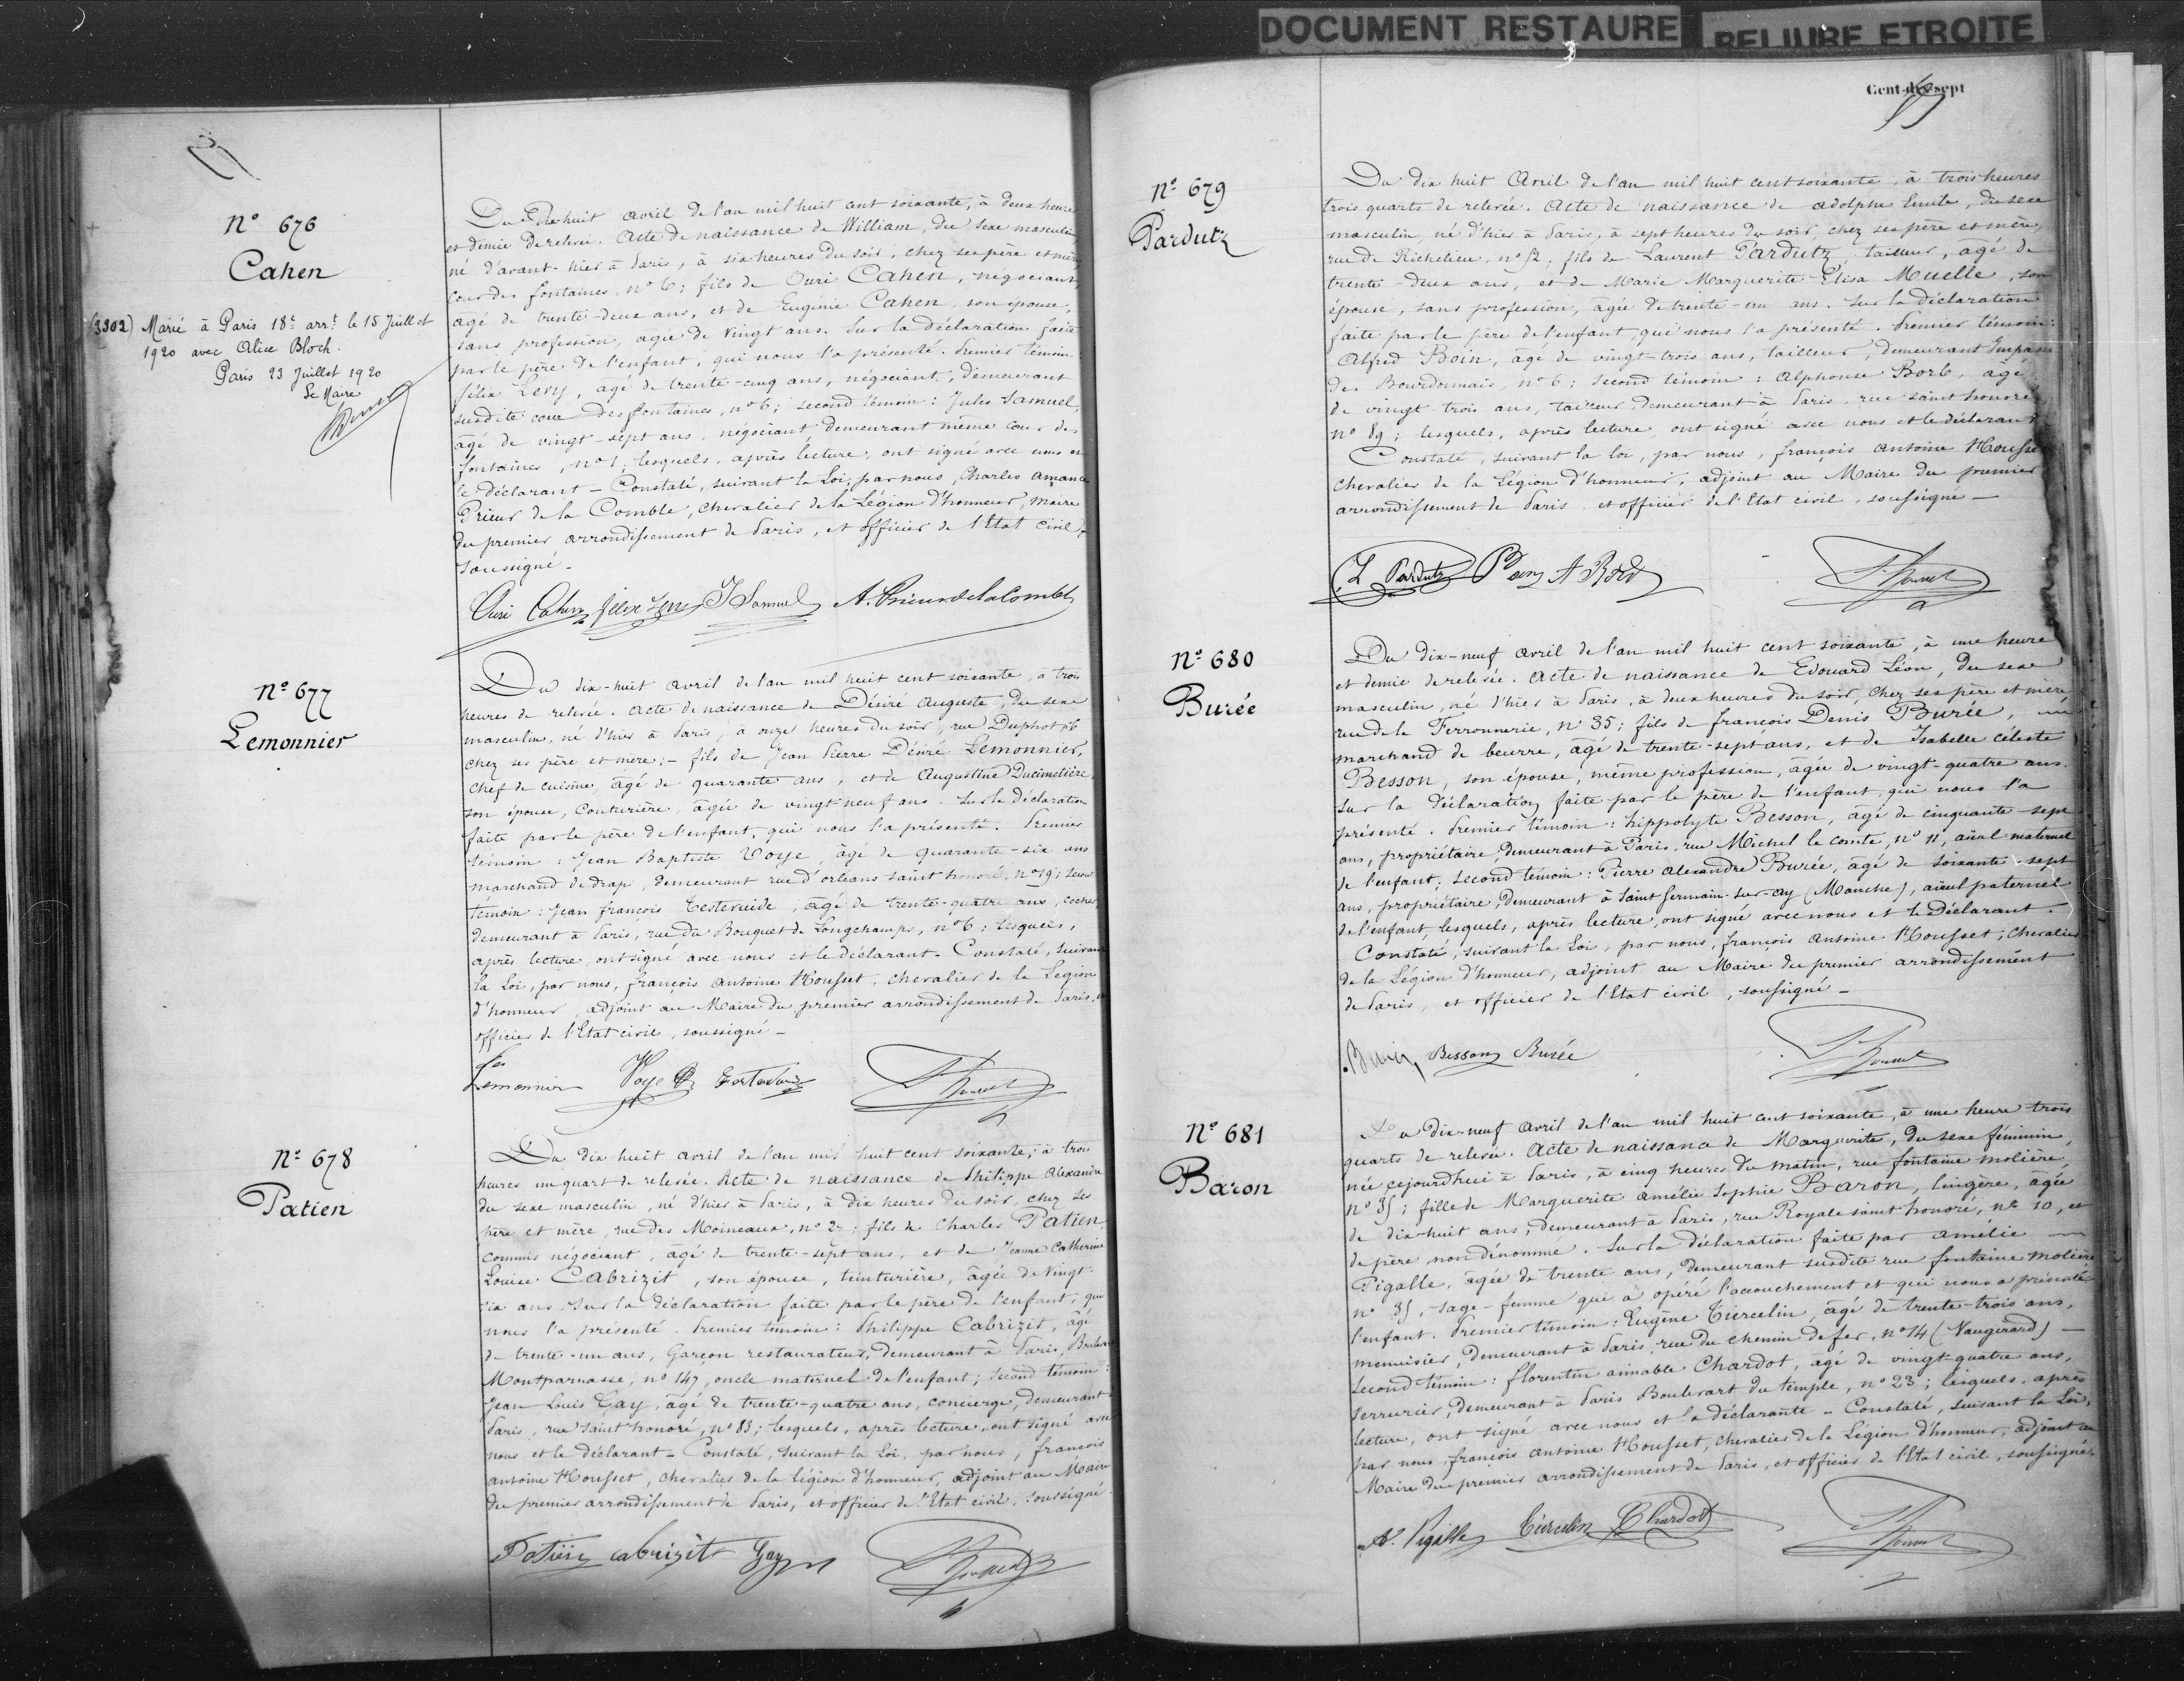 DOCUMENT RESTAURE
RELIURE ETROITE
Nº 676
Cahen
(3302) Marié à Paris 18e arrt le 15 Juillet
1920 avec Alice Bloch.
Paris 23 Juillet 1920
Le Maire
Du Dix huit avril de l'an mil huit cent soixante, à deux heures
et demie de relevée. Acte de naissance de William, du sexe masculin,
né d'avant-hier à Paris, à six heures du soir, chez ses père et mère
cour des fontaines, nº 6; fils de Ouri Cahen, négociant,
agé de trente-deux ans, et de Eugénie Cahen, son épouse,
sans profession, agée de vingt ans. Sur la déclaration faite
par le père de l'enfant, qui nous l'a présenté. Premier témoin:
félix Levy, agé de trente-cinq ans, négociant, demeurant
susdite cour des fontaines, nº 6; second témoin: Jules Samuel,
âgé de vingt-sept ans, négociant demeurant même cour des
fontaines, nº 1, lesquels, après lecture, ont signé avec nous et
le déclarant - Constaté, suivant la Loi, par nous, Charles Amance
Prieur de la Comble, chevalier de la Légion d'honneur, Maire
du premier arrondissement de Paris, et officier de l'Etat civil,
soussigné.
Ouri Cahen félix Levy J Samuel A. Prieur de la Comble
Nº 677
Lemonnier
Du dix-huit avril de l'an mil huit cent soixante, à trois
heures de relevée. Acte de naissance de Désiré Auguste, du sexe
masculin, né d'hier à Paris, à onze heures du soir, rue Duphot 16
chez ses père et mère; - fils de Jean Pierre Désiré Lemonnier,
chef de cuisine, âgé de quarante ans, et de Augustine Ducimetière,
son épouse, couturière, âgée de vingt-neuf ans. Sur la déclaration
faite par le père de l'enfant, qui nous l'a présenté. Premier
témoin: Jean Baptiste Voye, âgé de quarante-six ans
marchand de drap, demeurant rue d'orléans saint honoré, nº 19; second
témoin: Jean françois Testevuide, âgé de trente-quatre ans, cocher,
demeurant à Paris, rue du Bouquet de Longchamps, nº 6; lesquels,
après lecture, ont signé avec nous et le déclarant. Constaté, suivant
la Loi, par nous, françois Antoine Housset, chevalier de la Légion
d'honneur, adjoint au Maire du premier arrondissement de Paris, et
officier de l'Etat civil, soussigné -
Lemonnier Voye
Nº 678
Patien
Du dix huit avril de l'an mil huit cent soixante, à trois
heures un quart de relevée. Acte de naissance de Philippe Alexandre
du sexe masculin, né d'hier à Paris, à dix heures du soir, chez ses
père et mère, rue des Moineaux, nº 27; fils de Charles Patien,
commis négociant, âgé de trente-sept ans, et de Jeanne Catherine
Louise Cabrizit, son épouse, teinturière, âgée de Vingt-
six ans. Sur la déclaration faite par le père de l'enfant, qui
nous l'a présenté. Premier témoin: Philippe Cabrizit, âgé
de trente-un ans, Garçon restaurateur, demeurant à Paris, Boulevart
Montparnasse, nº 147, oncle maternel de l'enfant; second témoin:
Jean Louis Gay, âgé de trente-quatre ans, concierge, demeurant
Paris, rue saint honoré, nº 83; lesquels, après lecture, ont signé avec
nous et le déclarant - Constaté, suivant la Loi, par nous, françois
antoine Housset, chevalier de la légion d'honneur, adjoint au Maire
du premier arrondissement de Paris, et officier de l'Etat civil, soussigné.
Patien cabrizit Gay
Cent-dix-sept
Nº 679
Pardutz
Du dix huit Avril de l'an mil huit cent soixante, à trois heures
trois quarts de relevée. Acte de naissance de adolphe Emile, du sexe
masculin, né d'hier à Paris, à sept heures du soir, chez ses père et mère,
rue de Richelieu, nº 52; fils de Laurent Pardutz, tailleur, agé de
trente-deux ans, et de Marie Marguerite Elisa Muelle, son
épouse, sans profession, agée de trente-un ans. Sur la déclaration
faite par le père de l'enfant, qui nous l'a présenté. Premier témoin:
Alfred Boin, age de vingt-trois ans, tailleur, demeurant Impasse
des Bourdonnais, nº 6; second témoin: Alphonse Borb, agé
de vingt trois ans, tailleur, demeurant à Paris, rue saint honoré,
nº 89; lesquels, après lecture, ont signé avec nous et le déclarant
Constaté, suivant la loi, par nous, françois antoine Housset
chevalier de la Légion d'honneur, adjoint au Maire du premier
arrondissement de Paris, et officier de l'Etat civil, soussigné -
L Pardutz
Nº 680
Burée
Du dix-neuf avril de l'an mil huit cent soixante, à une heure
et demie de relevée. Acte de naissance de Edouard Léon, du sexe
masculin, né d'hier à Paris, à deux heures du soir, chez ses père et mère
rue de la Ferronnerie, nº 35; fils de françois Denis Burée,
marchand de beurre, agé de trente-sept ans, et de Isabelle céleste
Besson, son épouse, même profession, âgée de vingt-quatre ans.
Sur la déclaration faite par le père de l'enfant, qui nous l'a
présenté. Premier témoin: hippolyte Besson, âgé de cinquante-sept
ans, propriétaire, demeurant à Paris, rue Michel le comte, nº 11, aïeul maternel
de l'enfant; second témoin: Pierre Alexandre Burée, agé de soixante-sept
ans, propriétaire, demeurant à Saint Germain-sur-ay (Manche), aïeul paternel
de l'enfant, lesquels, après lecture, ont signé avec nous et le Déclarant.
Constaté, suivant la Loi, par nous, françois Antoine Housset, chevalier
de la Légion d'honneur, adjoint au Maire du premier arrondissement
de Paris, et officier de l'Etat civil, soussigné -
Burée Besson Burée
Nº 681
Baron
Du dix-neuf avril de l'an mil huit cent soixante, à une heure trois
quarts de relevée. Acte de naissance de Marguerite, du sexe féminin,
née cejourd'hui à Paris, à cinq heures du matin, rue fontaine molière,
nº 35; fille de Marguerite amélie Sophie Baron, lingère, agée
de dix-huit ans, demeurant à Paris, rue Royale saint honoré, nº 10, et
de père non dénommé. Sur la déclaration faite par amélie
Pigalle, âgée de trente ans, demeurant susdite rue fontaine molière
nº 35, sage-femme qui a opéré l'accouchement et qui nous a présenté
l'enfant. Premier témoin: Eugène Tiercelin, âgé de trente-trois ans,
menuisier, demeurant à Paris, rue du chemin de fer, nº 14 (Vaugirard) -
second témoin: florentin aimable Chardot, âgé de vingt-quatre ans,
serrurier, demeurant à Paris Boulevart du temple, nº 23; lesquels, après
lecture, ont signé avec nous et la déclarante - Constaté, suivant la Loi,
par nous, françois antoine Housset, chevalier de la Légion d'honneur, adjoint au
Maire du premier arrondissement de Paris, et officier de l'Etat civil, soussigné.
Pigalle Tiercelin Chardot